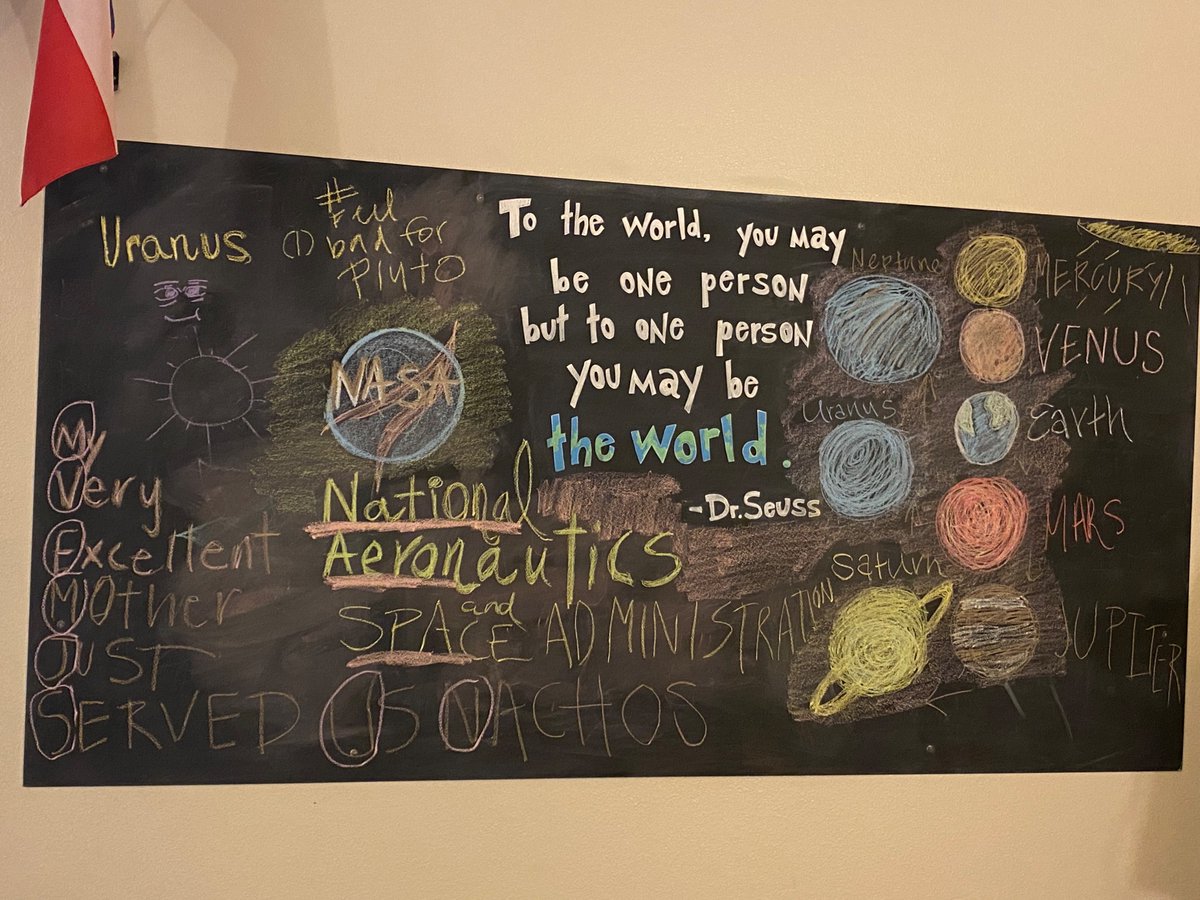 Uranus
#Feel
bad for
Pluto
NASA
My
Very
Excellent
MOther
JUST
SERVED US NACHOS
National
Aeronautics
and
SPACE ADMINISTRATION
To the world, you may
be one person
but to one person
you may be
the world.
-Dr. Seuss
Neptune
Uranus
Saturn
MERCURY
VENUS
Earth
MARS
JUPITER